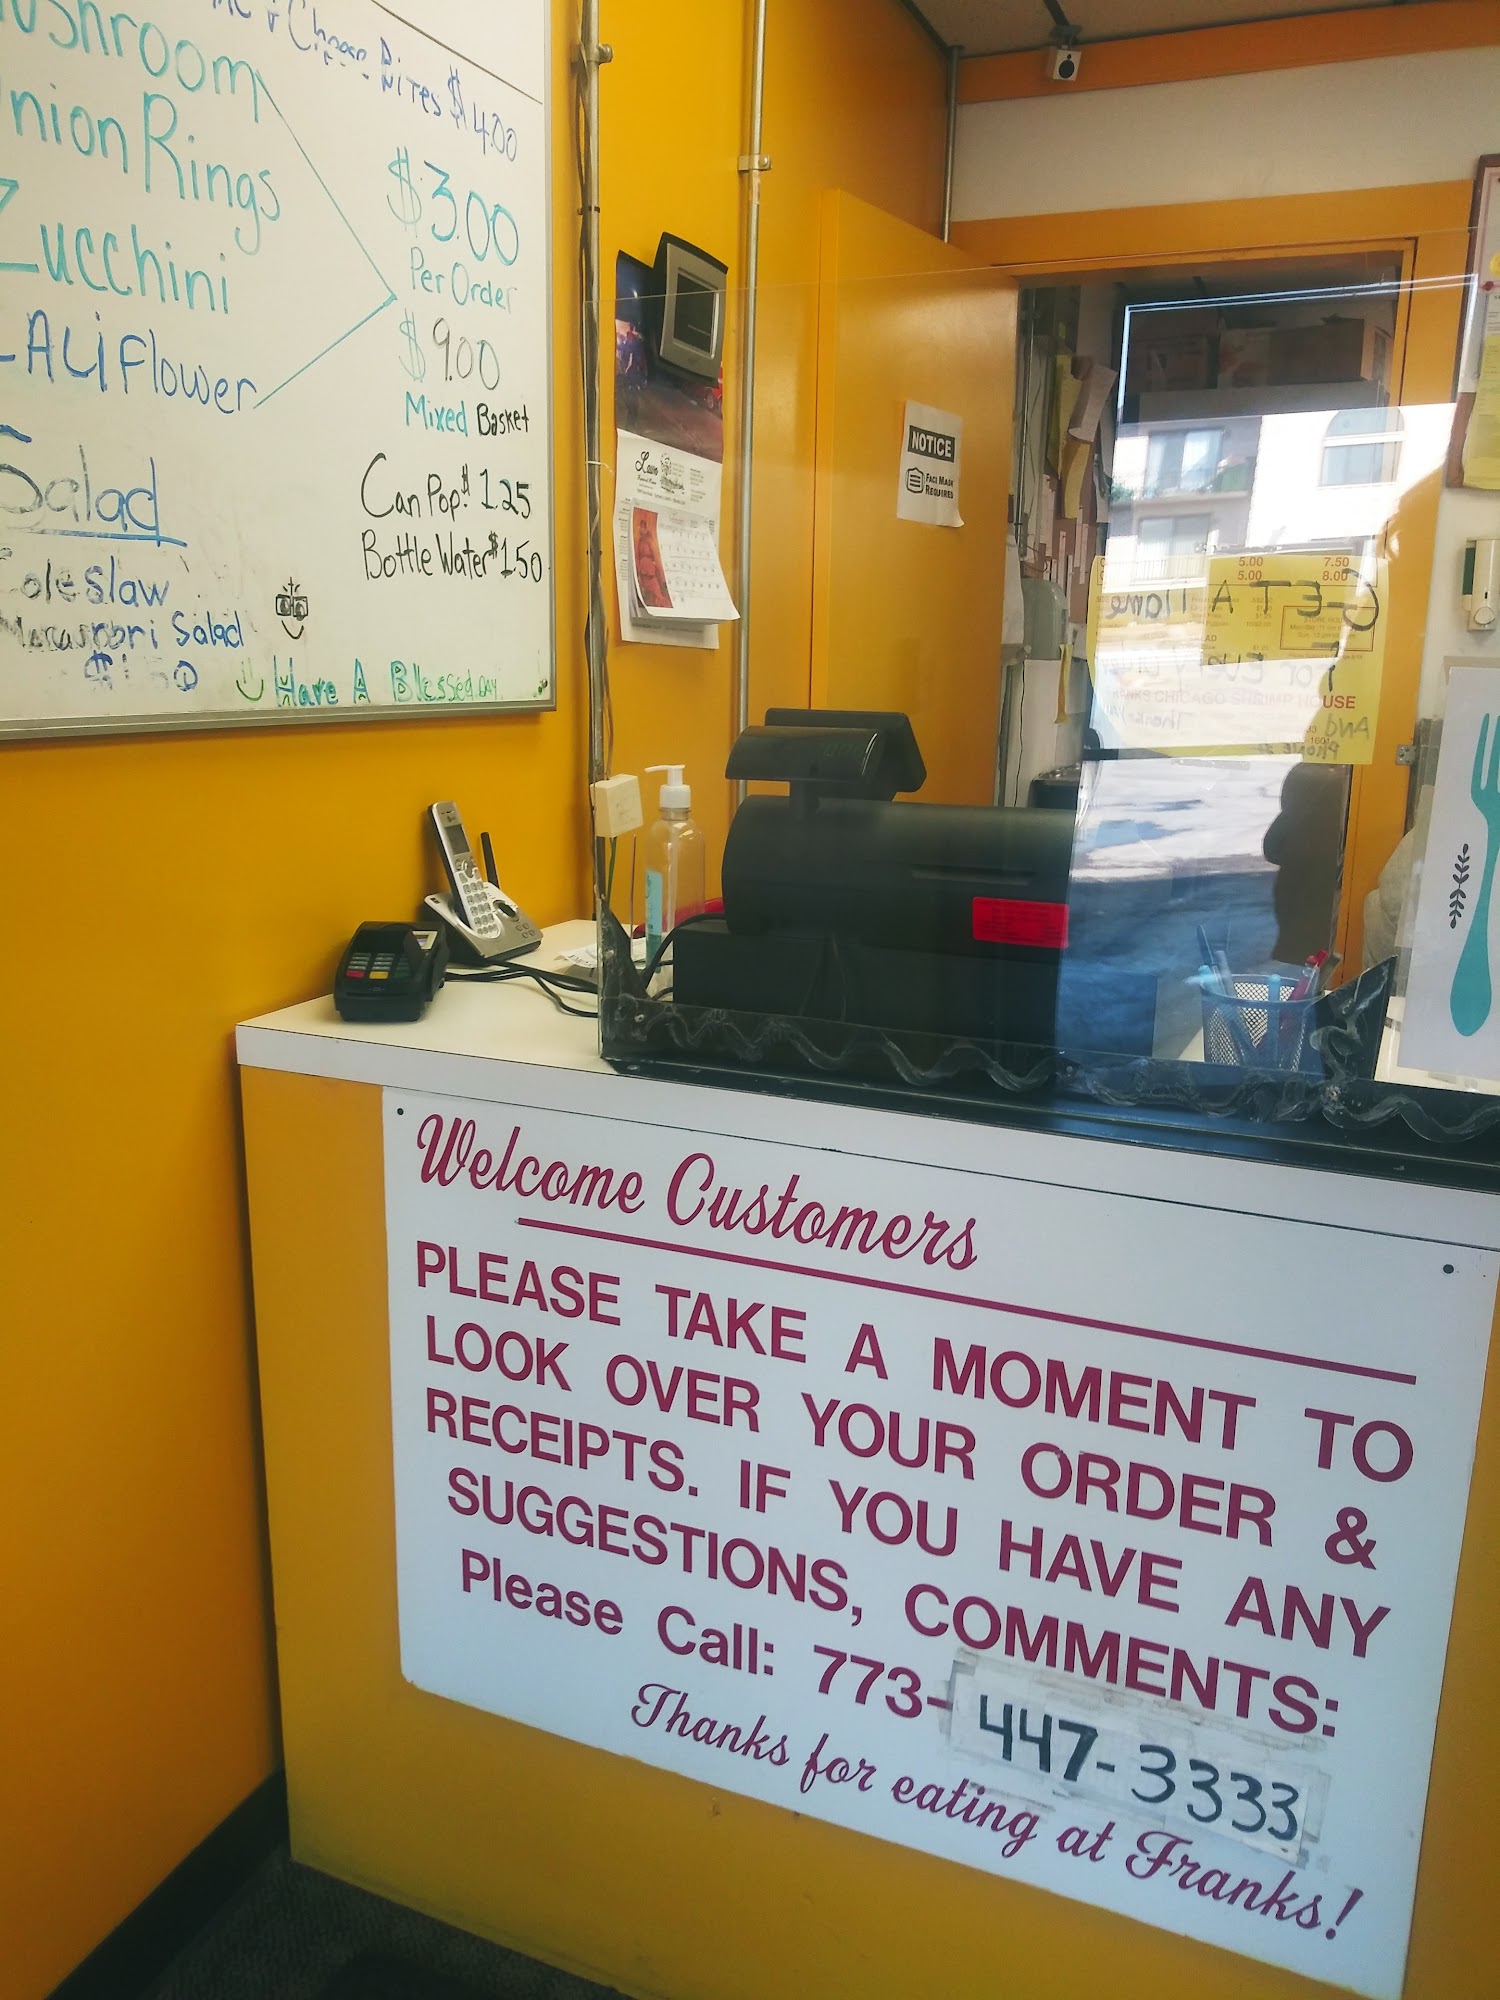 & Cheese Bites $4.00
ushroom
nion Rings
Zucchini
CAliFlower
$3.00
Per Order
$9.00
Mixed Basket
Can Pop $1.25
Bottle Water $1.50
Salad
oleslaw
Salad
Have A Blessed DAY
NOTICE
FACE MASK
REQUIRED
5.00 7.50
5.00 8.00
GET A Name
For Every
CHICAGO SHRIMP HOUSE
AND
Phone #
Welcome Customers
PLEASE TAKE A MOMENT TO
LOOK OVER YOUR ORDER &
RECEIPTS. IF YOU HAVE ANY
SUGGESTIONS, COMMENTS:
Please Call: 773-447-3333
Thanks for eating at Franks!